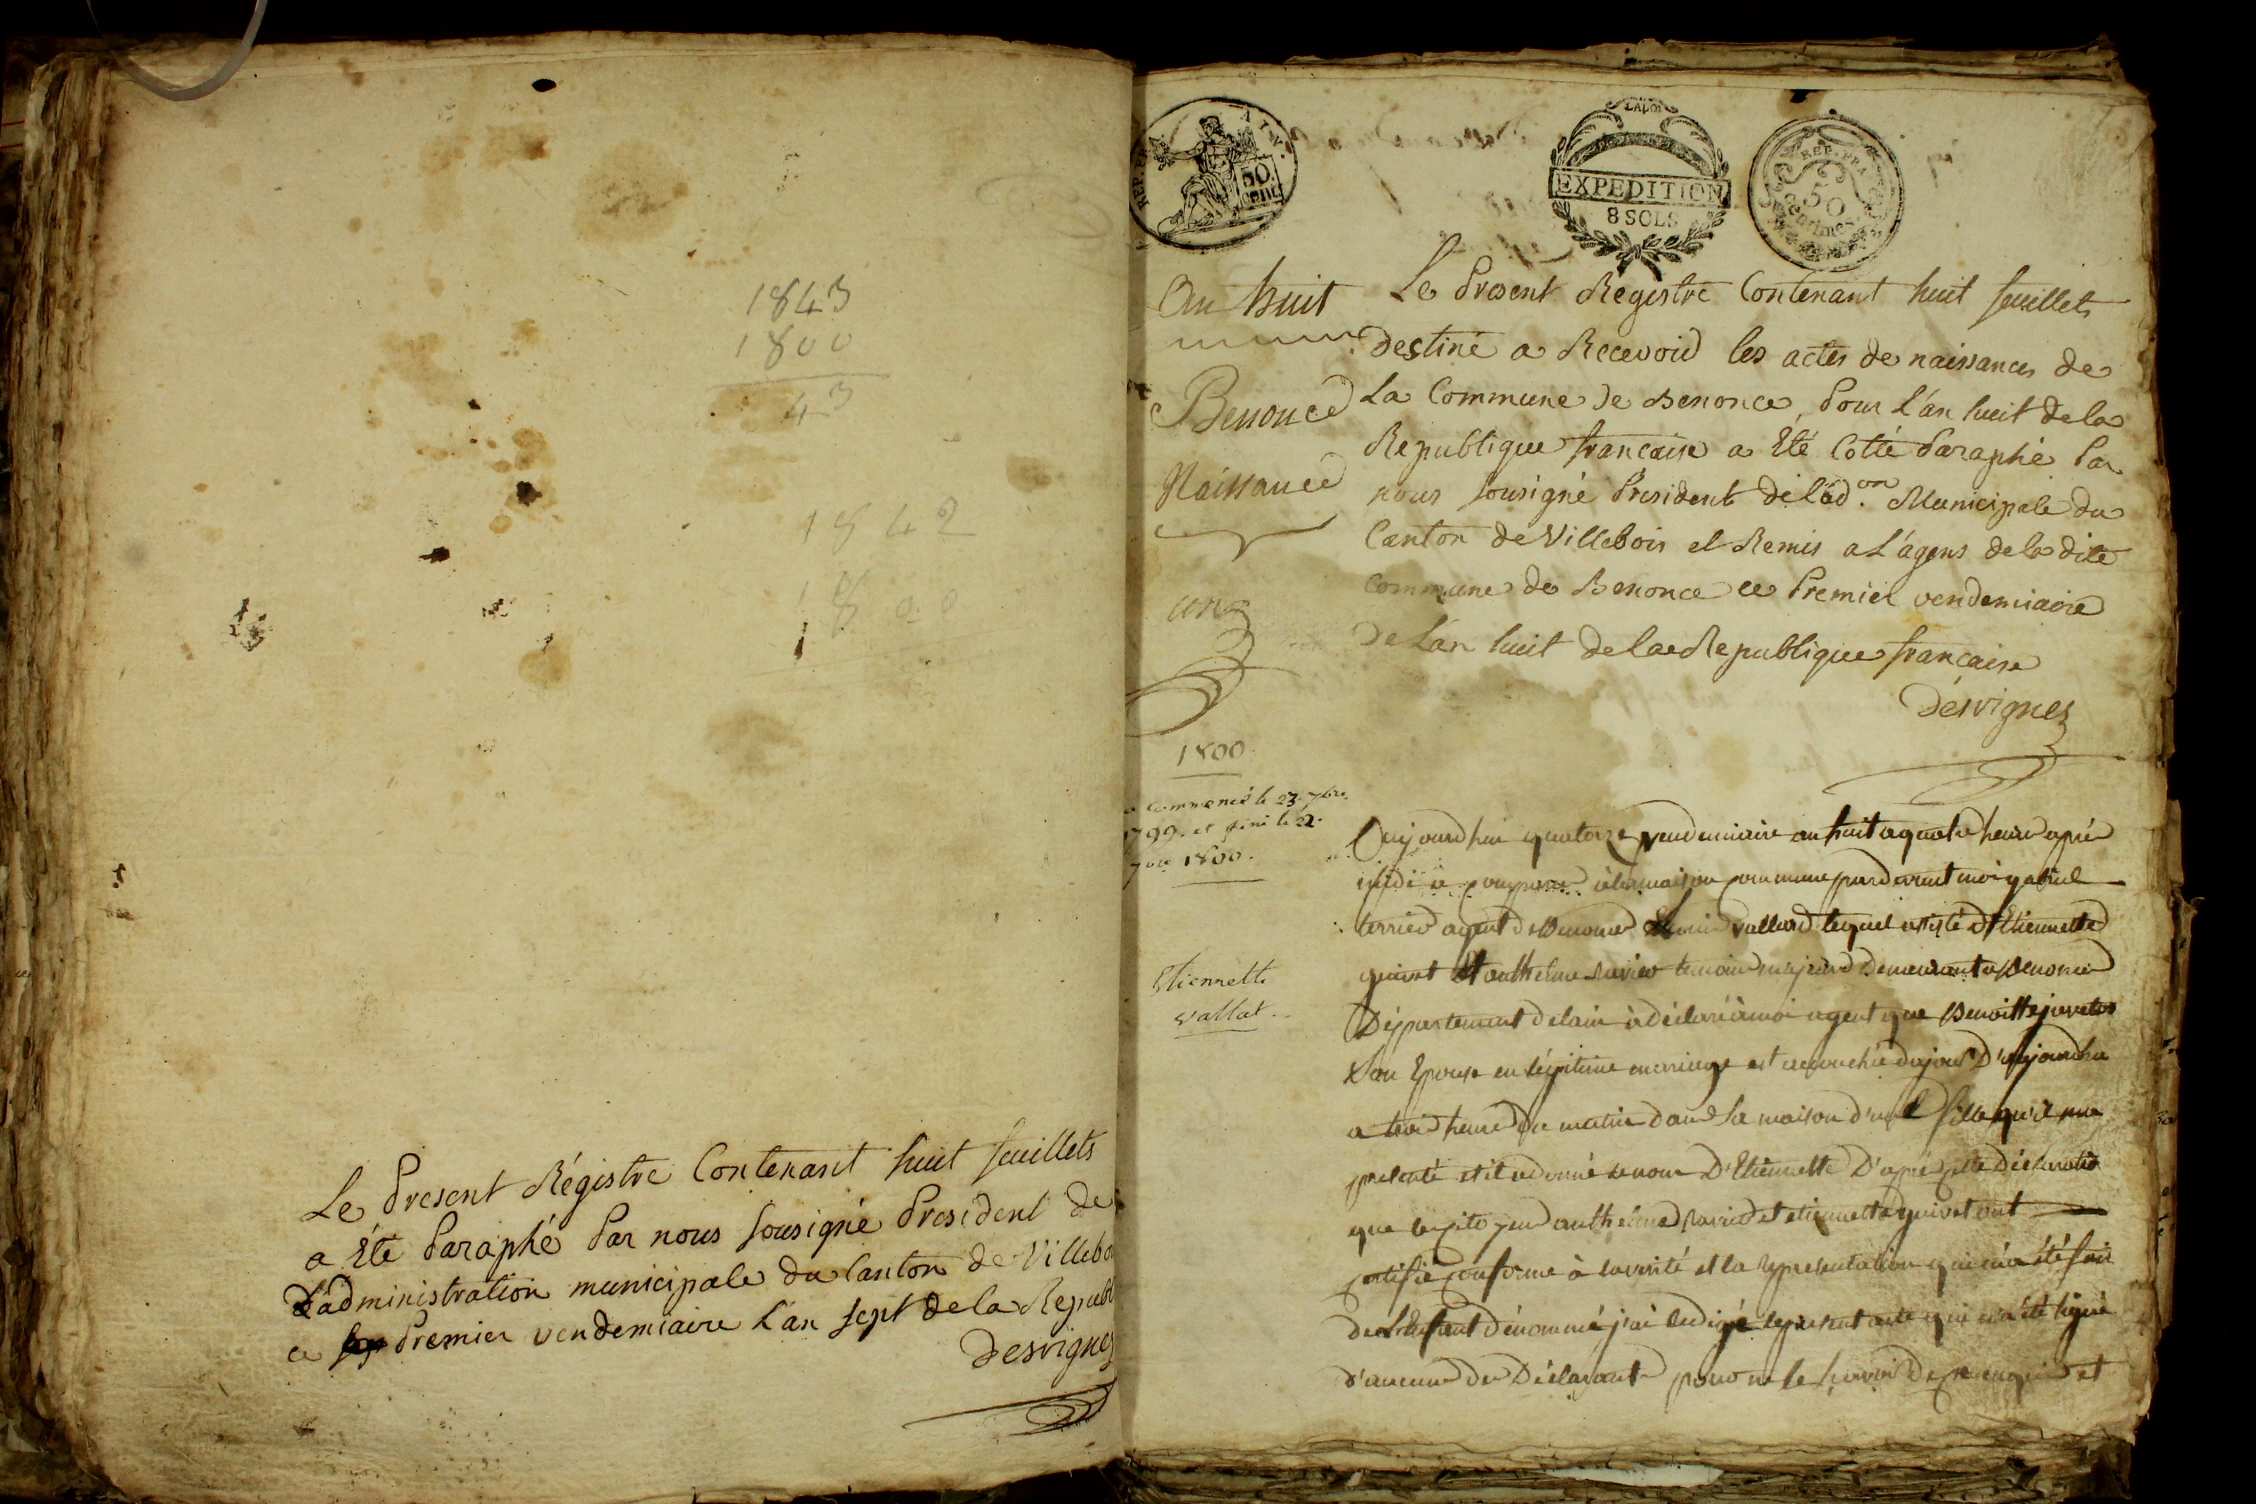 1843
1800
43
1842
1800
Le Present Régistre Contenant huit feuillets
a Été Paraphé Par nous sousigné President de
L'administration municipale du Canton de Villebo
ce Premier vendemiaire L'an sept de la Republ
Desvignes
REP. FRA. AIN.
50 cent
LA LOI
EXPEDITION
8 SOLS
REP. FRA.
50
centimes
An huit
Benonce
Naissance
un
Le Present Régistre Contenant huit feuillets
destiné a Recevoir les actes de naissances de
La Commune de Benonce, Pour L'an huit de la
Republique francaise a Été Cotté Paraphé Par
nous sousigné President de l'ad.on Municipale du
Canton de Villebois et Remis a L'agens de la dite
Commune de Benonce ce Premier vendemiaire
de L'an huit de la Republique francaise
Désvignes
1800
a Commencé le 23 7bre
1799. et fini le 22.
7bre 1800.
Etiennette
vallat.
Aujourdhui quatorze vendemiaire an huit a quatre heure aprés
midi a comparu à la maison commune pardevant moi gabriel
terrier agent de Benonce vallard lequel assisté D'Etiennette
quivet et anthelme temoin majeur demeurant a Benonce
Département de lain à déclaré à moi agent que Benoitte
Son Epouse en légitime mariage est accouchée du jour D'aujourdhui
a trois heure du matin dans sa maison d'une fille qu'il ma
presenté et il a donné le nom D'Etiennette D'aprés cette déclaration
que le anthelme et etiennette quivet ont
certifié conforme à la verité et la representation qui m'a été fait
de L'Enfant dénommé j'ai redigé le present acte qui n'a été signé
d'aucun des Déclarants pour ne le savoir de ce enquis et